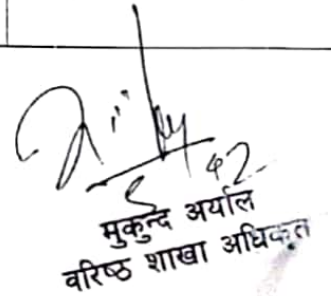 मुकुन्द अर्याल
वरिष्ठ शाखा अधिकृत